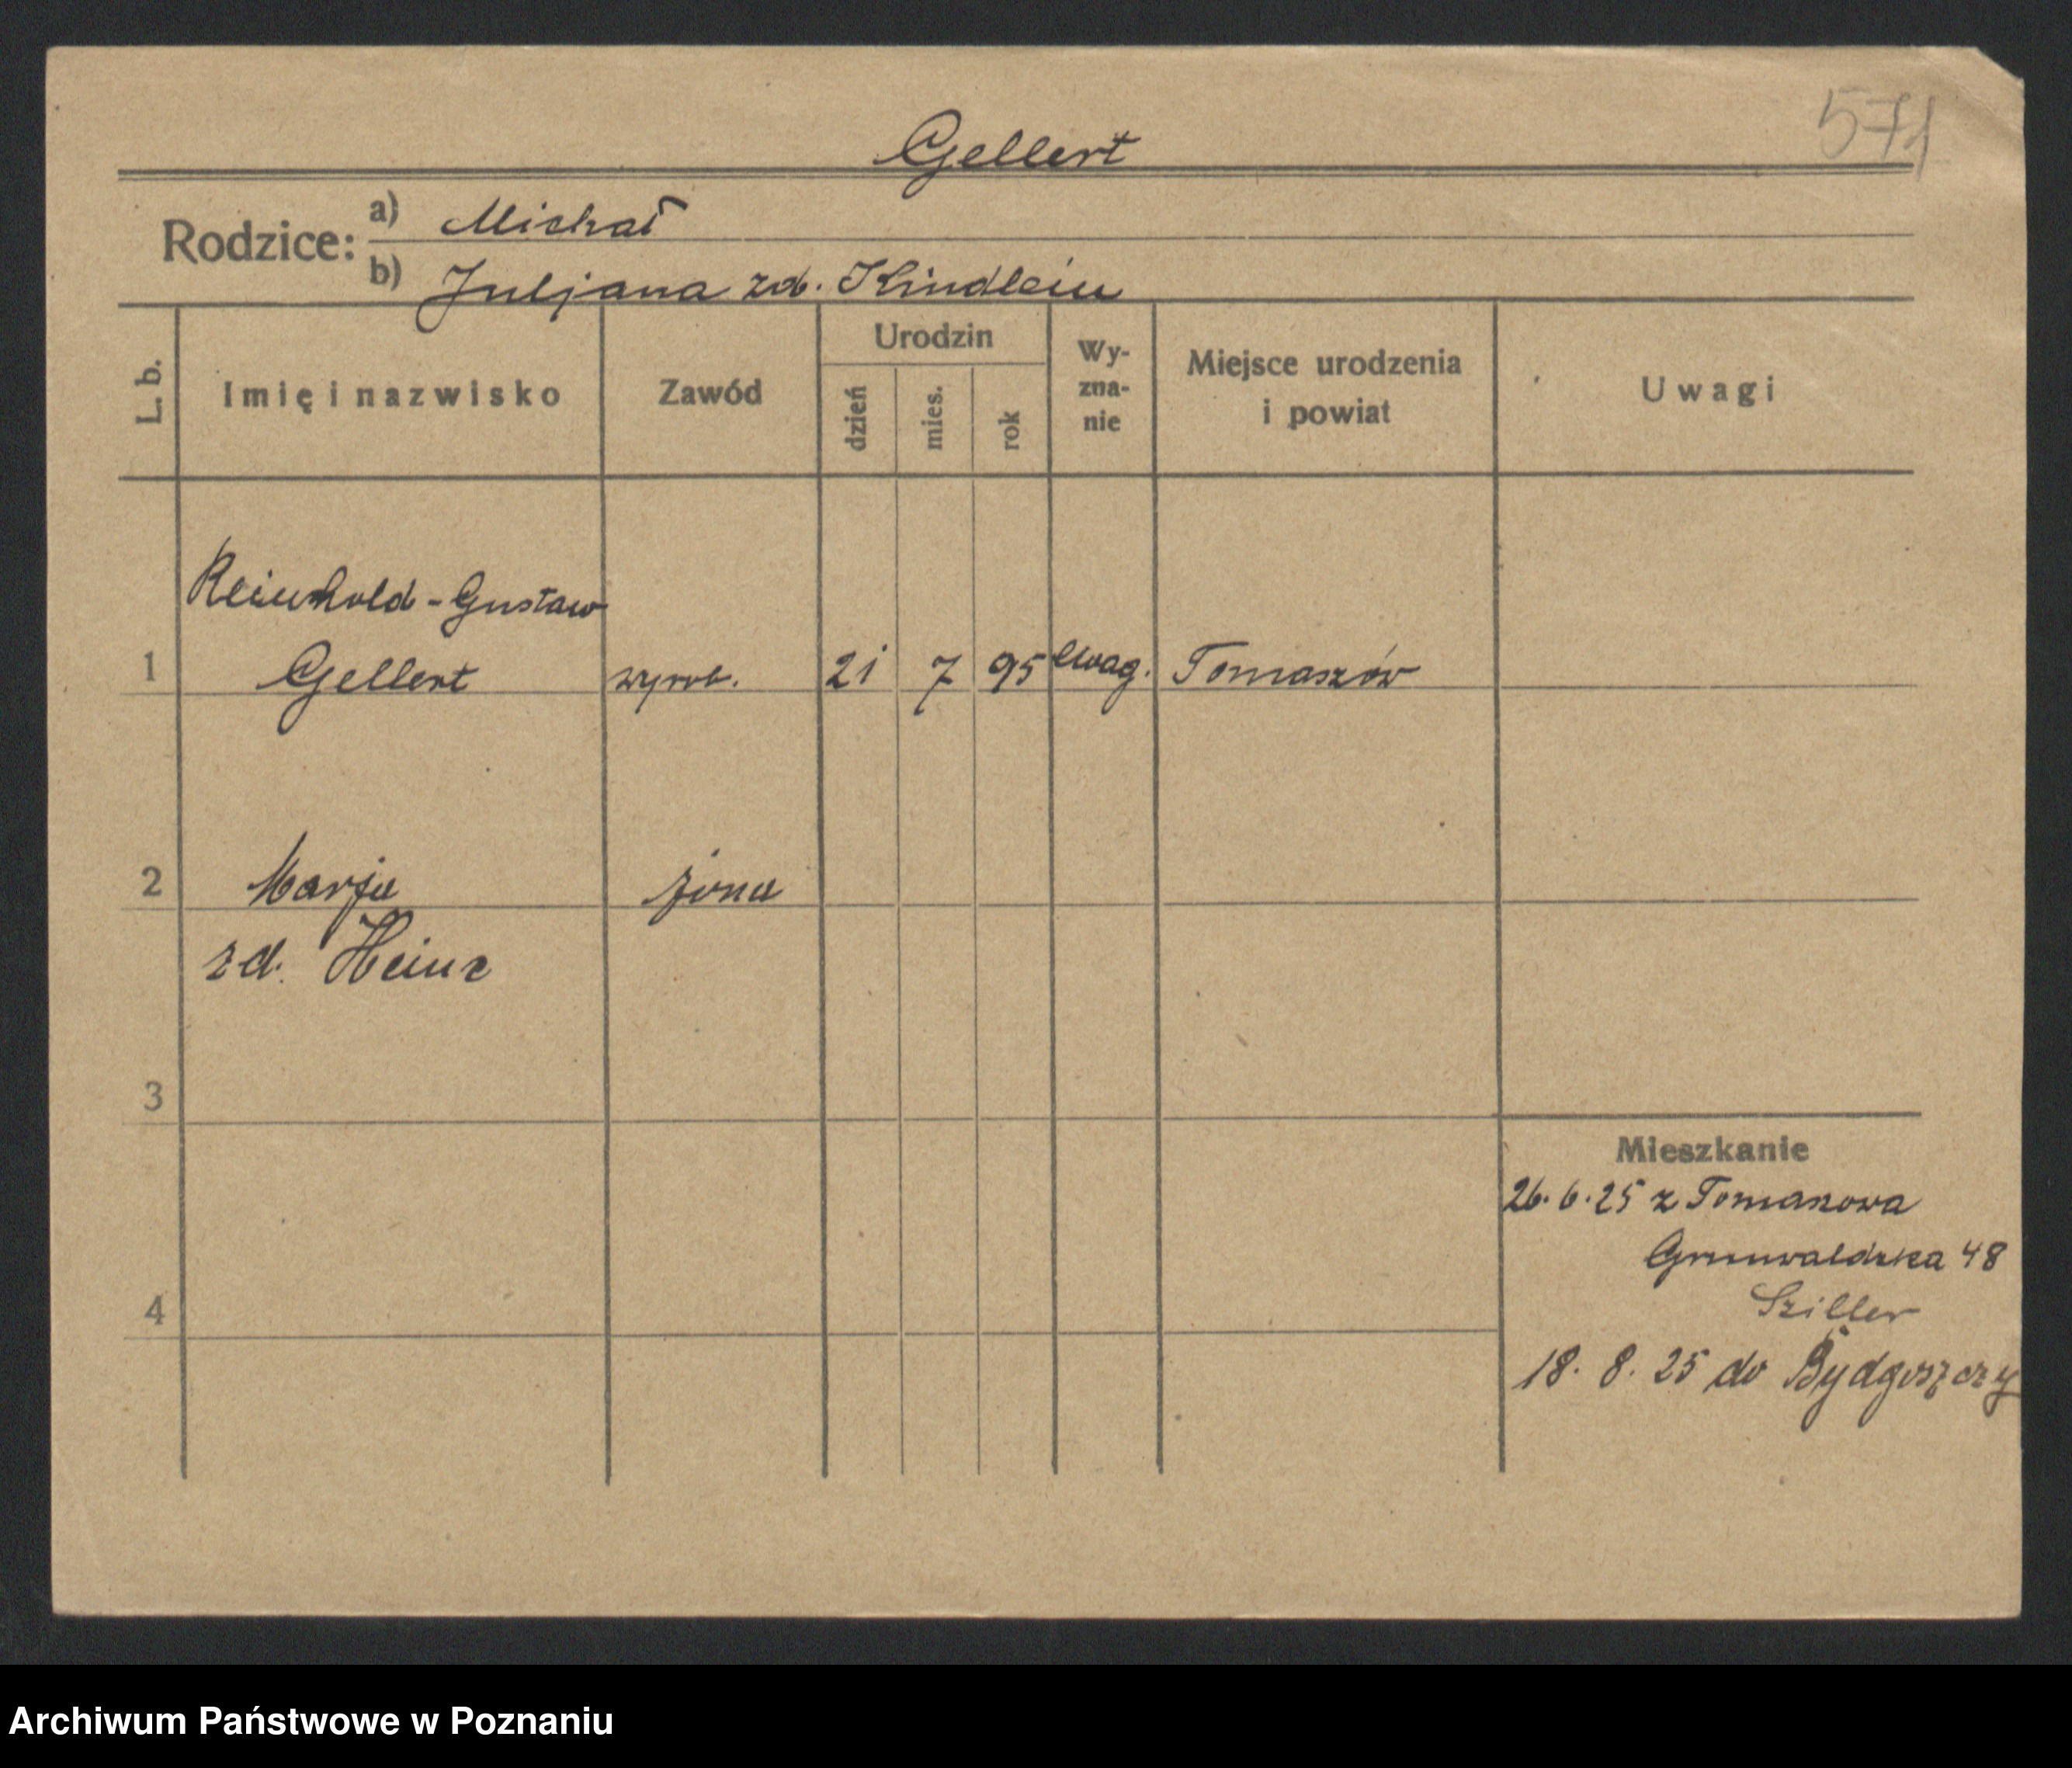 571
Gellert
Rodzice: a) Michał
b) Juljana zd. Kindlein
L. b. Imię i nazwisko Zawód Urodzin dzień mies. rok Wy-zna-nie Miejsce urodzenia i powiat Uwagi
Reinhold-Gustaw
1 Gellert wyrob. 21 7 95 ewag. Tomaszów
2 Marja żona
zd. Heinz
3
Mieszkanie
26.6.25 z Tomaszowa
Grunwaldzka 48
4 Sziller
18. 8. 25 do Bydgoszczy
Archiwum Państwowe w Poznaniu